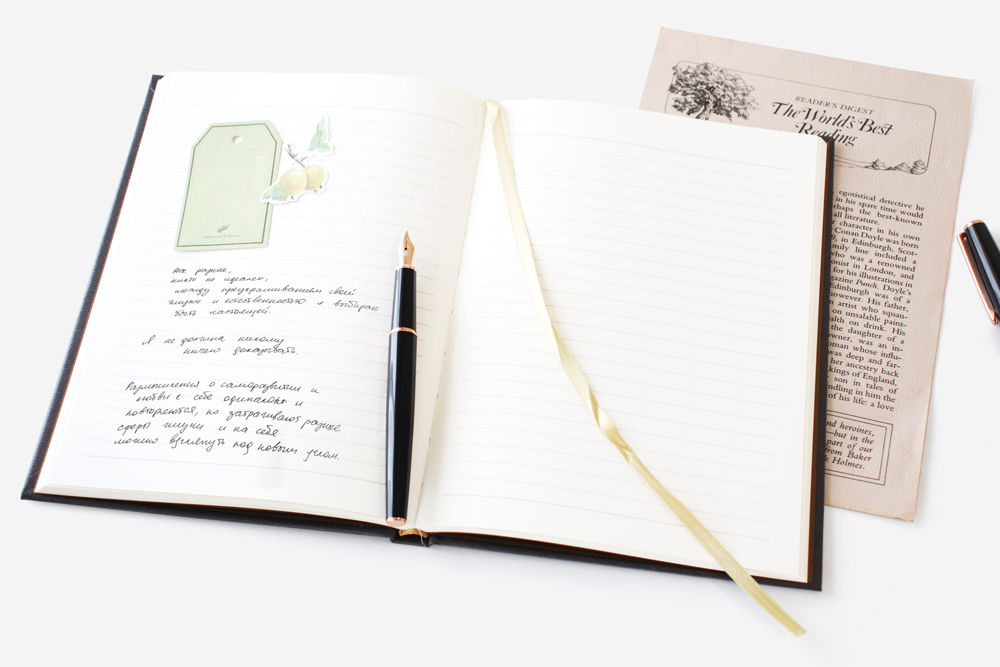 Все разные,
никто не идеален,
между предугадыванием своей
жизни и естественностью я выбираю
быть настоящей.
Я не должна никому
ничего доказывать.
Размышления о саморазвитии и
любви к себе одинаковы и
повторяются, но затрагивают разные
сферы жизни и на себя
можно взглянуть под новым углом.
READER'S DIGEST
The World's Best
Reading
egotistical detective he
in his spare time would
rhaps the best-known
all literature.
character in his own
Conan Doyle was born
9, in Edinburgh, Scot-
mily line included a
who was a renowned
onist in London, and
for his illustrations in
gazine Punch. Doyle's
Edinburgh was of a
however. His father,
n artist who squan-
on unsalable paint-
alth on drink. His
the daughter of a
owner, was an in-
oman whose influ-
was deep and far-
her ancestry back
kings of England,
son in tales of
ndling in him the
of his life: a love
nd heroines,
—but in the
part of our
from Baker
k Holmes.